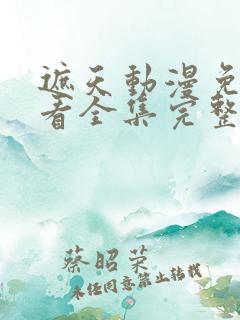 遮天動漫免
看全集完整
蔡昭荣
未经同意禁止转载